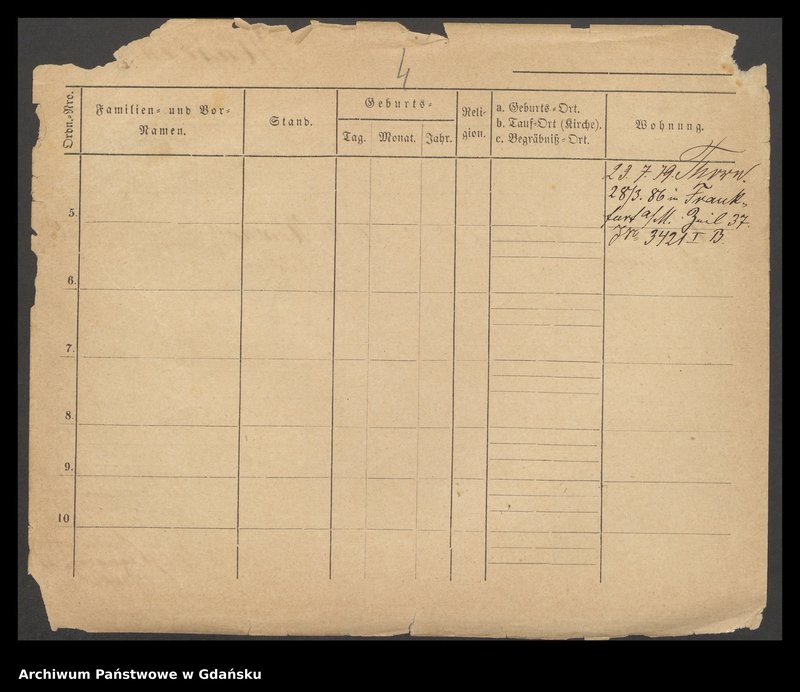 4
Ordn.-Nro.
Familien- und Vor-
Namen.
Stand.
Geburts-
Tag.
Monat.
Jahr.
Reli-
gion.
a. Geburts-Ort.
b. Tauf-Ort (Kirche).
c. Begräbniß-Ort.
Wohnung.
23. 7. 79. Thorn.
28/3. 86 in Frank-
furt a/M. Zeil 37.
JNo 3421 I B.
5.
6.
7.
8.
9.
10
Archiwum Państwowe w Gdańsku